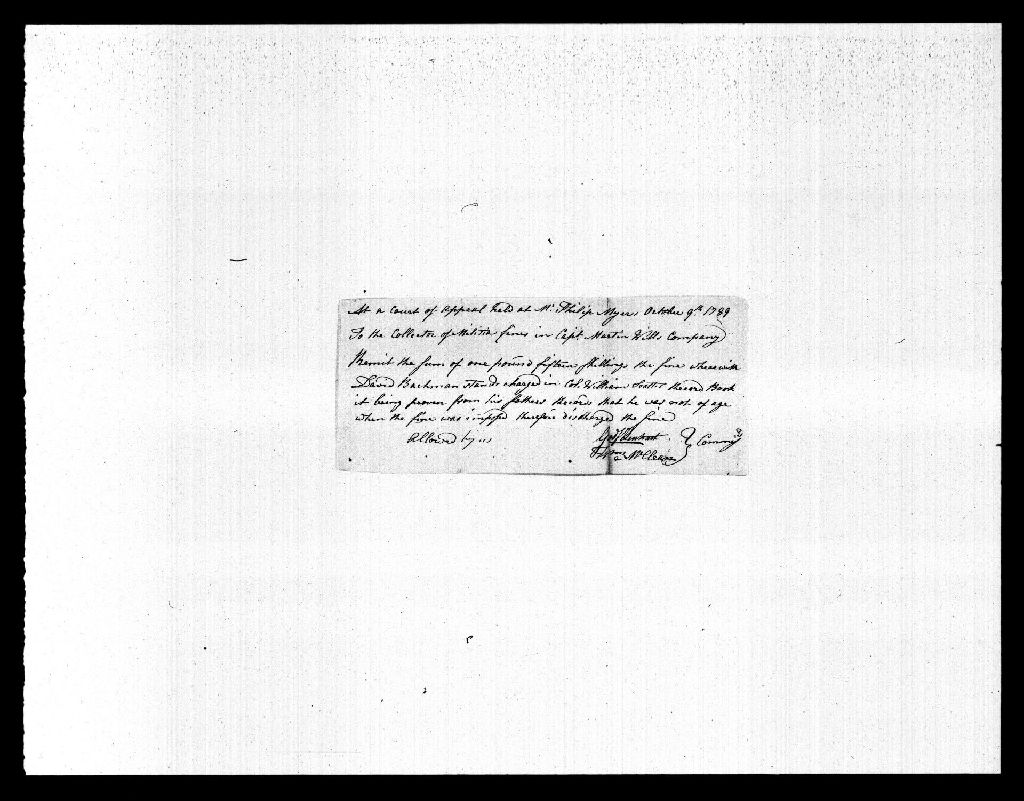 At a Court of Appeal held at Mr. Philip Myers October 9th 1789
To the Collector of Militia fines in Capt Martin Wills Company
Remit the sum of one pound fifteen Shillings the fine wherewith
David Bachman stands charged in Col. William Scotts Record Book
it being proven from his fathers Record that he was not of age
when the fine was imposed therefore discharged the fine
Allowed by us
Comm
Mc